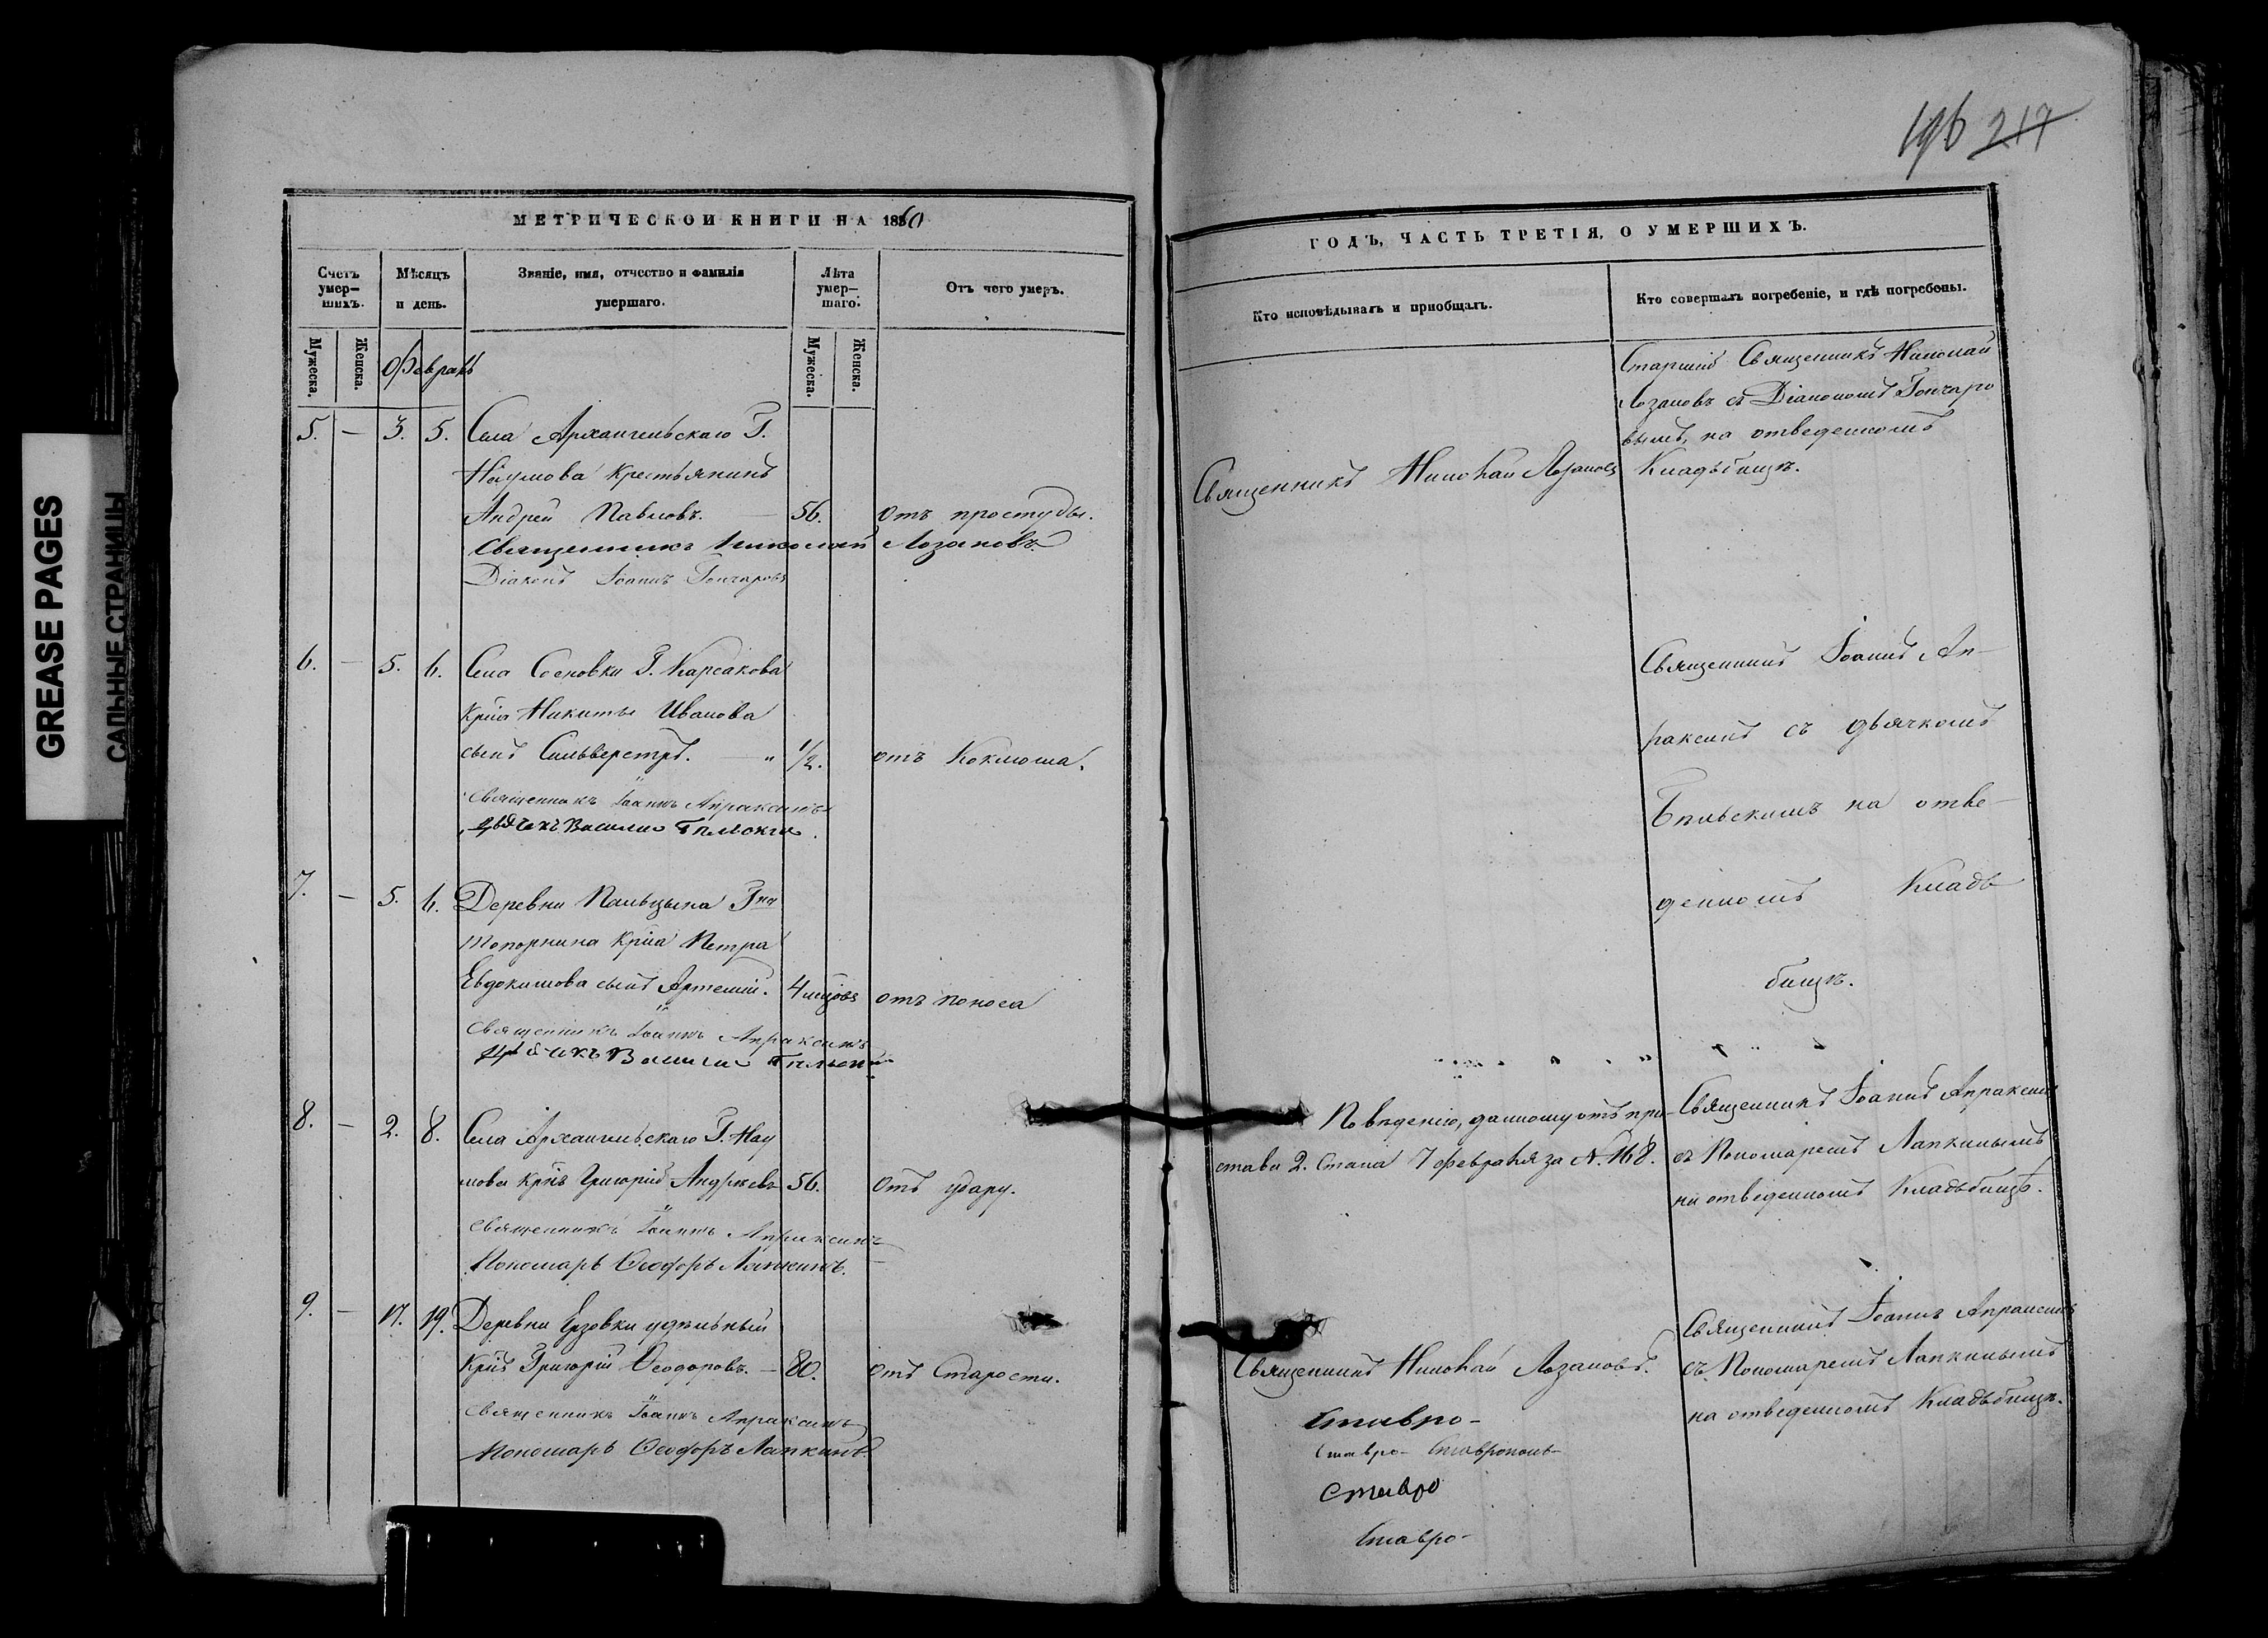 GREASE PAGES
САЛЬНЫЕ СТРАНИЦЫ
МЕТРИЧЕСКОЙ КНИГИ НА 1860
Счетъ умер-шихъ.
Мѣсяцъ и день.
Званіе, имя, отчество и фамилія умершаго.
Лѣта умер-шаго.
Отъ чего умеръ.
Мужеска.
Женска.
Мужеска.
Женска.
Февраль
5. — 3. 5. Села Архангельскаго Г.
Наумова Крестьянинъ
Андрей Павловъ. — 56. отъ простуды.
Священникъ Николай Лозановъ
Діаконъ Іоаннъ Гончаровъ
6. — 5. 6. Села Сосновки Г. Карсакова
Кр͠на Никиты Иванова
сынъ Сильверстръ. — " 1/2. отъ Коклюша.
Священникъ Іоаннъ Апраксинъ
Дьячекъ Василій
7. — 5. 6. Деревни Пальцына Гна
Топорнина Кр͠на Петра
Евдокимова сынъ Артемій. 4 мцовъ отъ поноса
Священникъ Іоаннъ Апраксинъ
Дьячекъ Василій
8. — 2. 8. Села Архангельскаго Г. Нау
мова Кр͠нъ Григорій Андреевъ 56. Отъ удару.
Священникъ Іоаннъ Апраксинъ
Пономарь Ѳеодоръ Лапкинъ.
9. — 17. 19. Деревни Ерзовки удѣльный
Кр͠нъ Григорій Ѳеодоровъ. — 80. Отъ Старости.
Священникъ Іоаннъ Апраксинъ
Пономарь Ѳеодоръ Лапкинъ.
196 217
ГОДЪ, ЧАСТЬ ТРЕТІЯ, О УМЕРШИХЪ.
Кто исповѣдывалъ и пріобщалъ.
Кто совершалъ погребеніе, и гдѣ погребены.
Старшій Священникъ Николай
Лозановъ съ Діакономъ Гончаро
вымъ, на отведенномъ
Священникъ Николай Лозановъ Кладьбищѣ.
Священникъ Іоаннъ Ап-
раксинъ съ дьячкомъ
Бѣльскимъ на отве-
денномъ Кладь
бищѣ.
По вѣденію, данному отъ при-
става 2. Стана 7 февраля за №. 168.
Священникъ Іоаннъ Апраксинъ
съ Пономаремъ Лапкинымъ
на отведенномъ Кладьбищѣ.
Священникъ Николай Лозановъ.
Священникъ Іоаннъ Апраксинъ
съ Пономаремъ Лапкинымъ
на отведенномъ Кладьбищѣ.
Ставро-
Ставро- Ставрополь-
Ставро
Ставро-